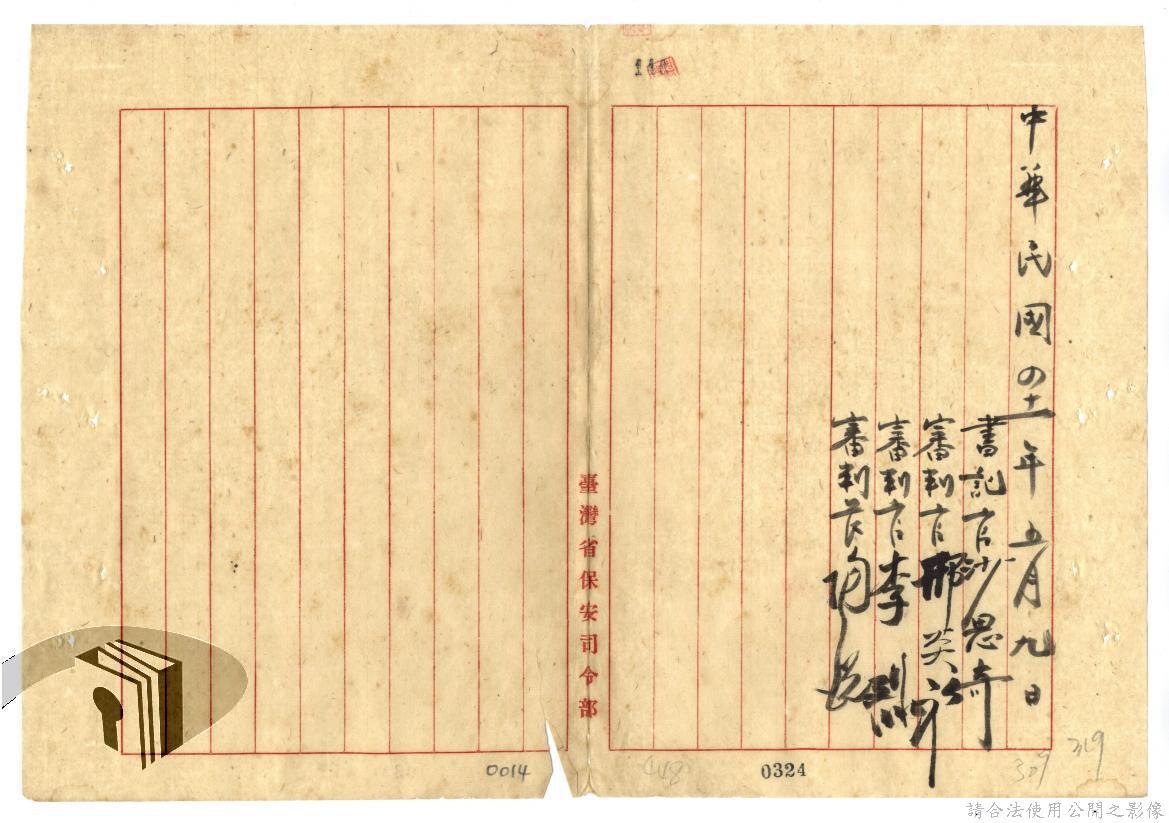 中華民國四十一年五月九日
書記官沙思奇
審判官邢炎初
審判官李
審判長
臺灣省保安司令部
0014
448
0324
309
319
請合法使用公開之影像